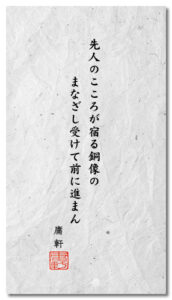 先人のこころが宿る銅像の
まなざし受けて前に進まん
庸軒